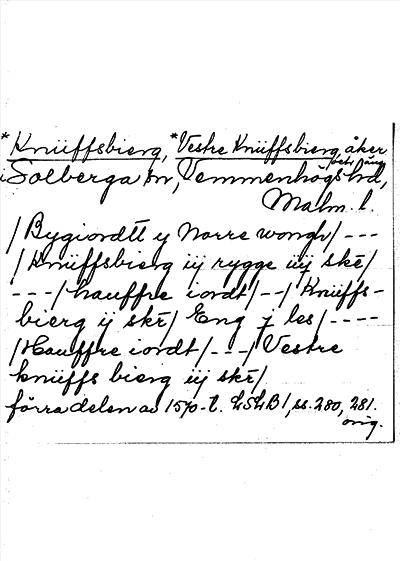 *Knüffsbierg, *Vestre Knüffsbierg, åker
och äng
i Solberga sn, Vemmenhögs hd,
Malm. l.
/Bygiordtt y Norre wongh/---
/Knüffsbierg iij rygge iiij skr̄/
---/hauffre iordt/--/Knüffs-
bierg ij skr̄/ Eng j les/----
/Hauffre iordt/---/Vestre
knüffs bierg iij skr̄/
förra delen av 1570-t. LSLB 1, ss. 280, 281.
orig.